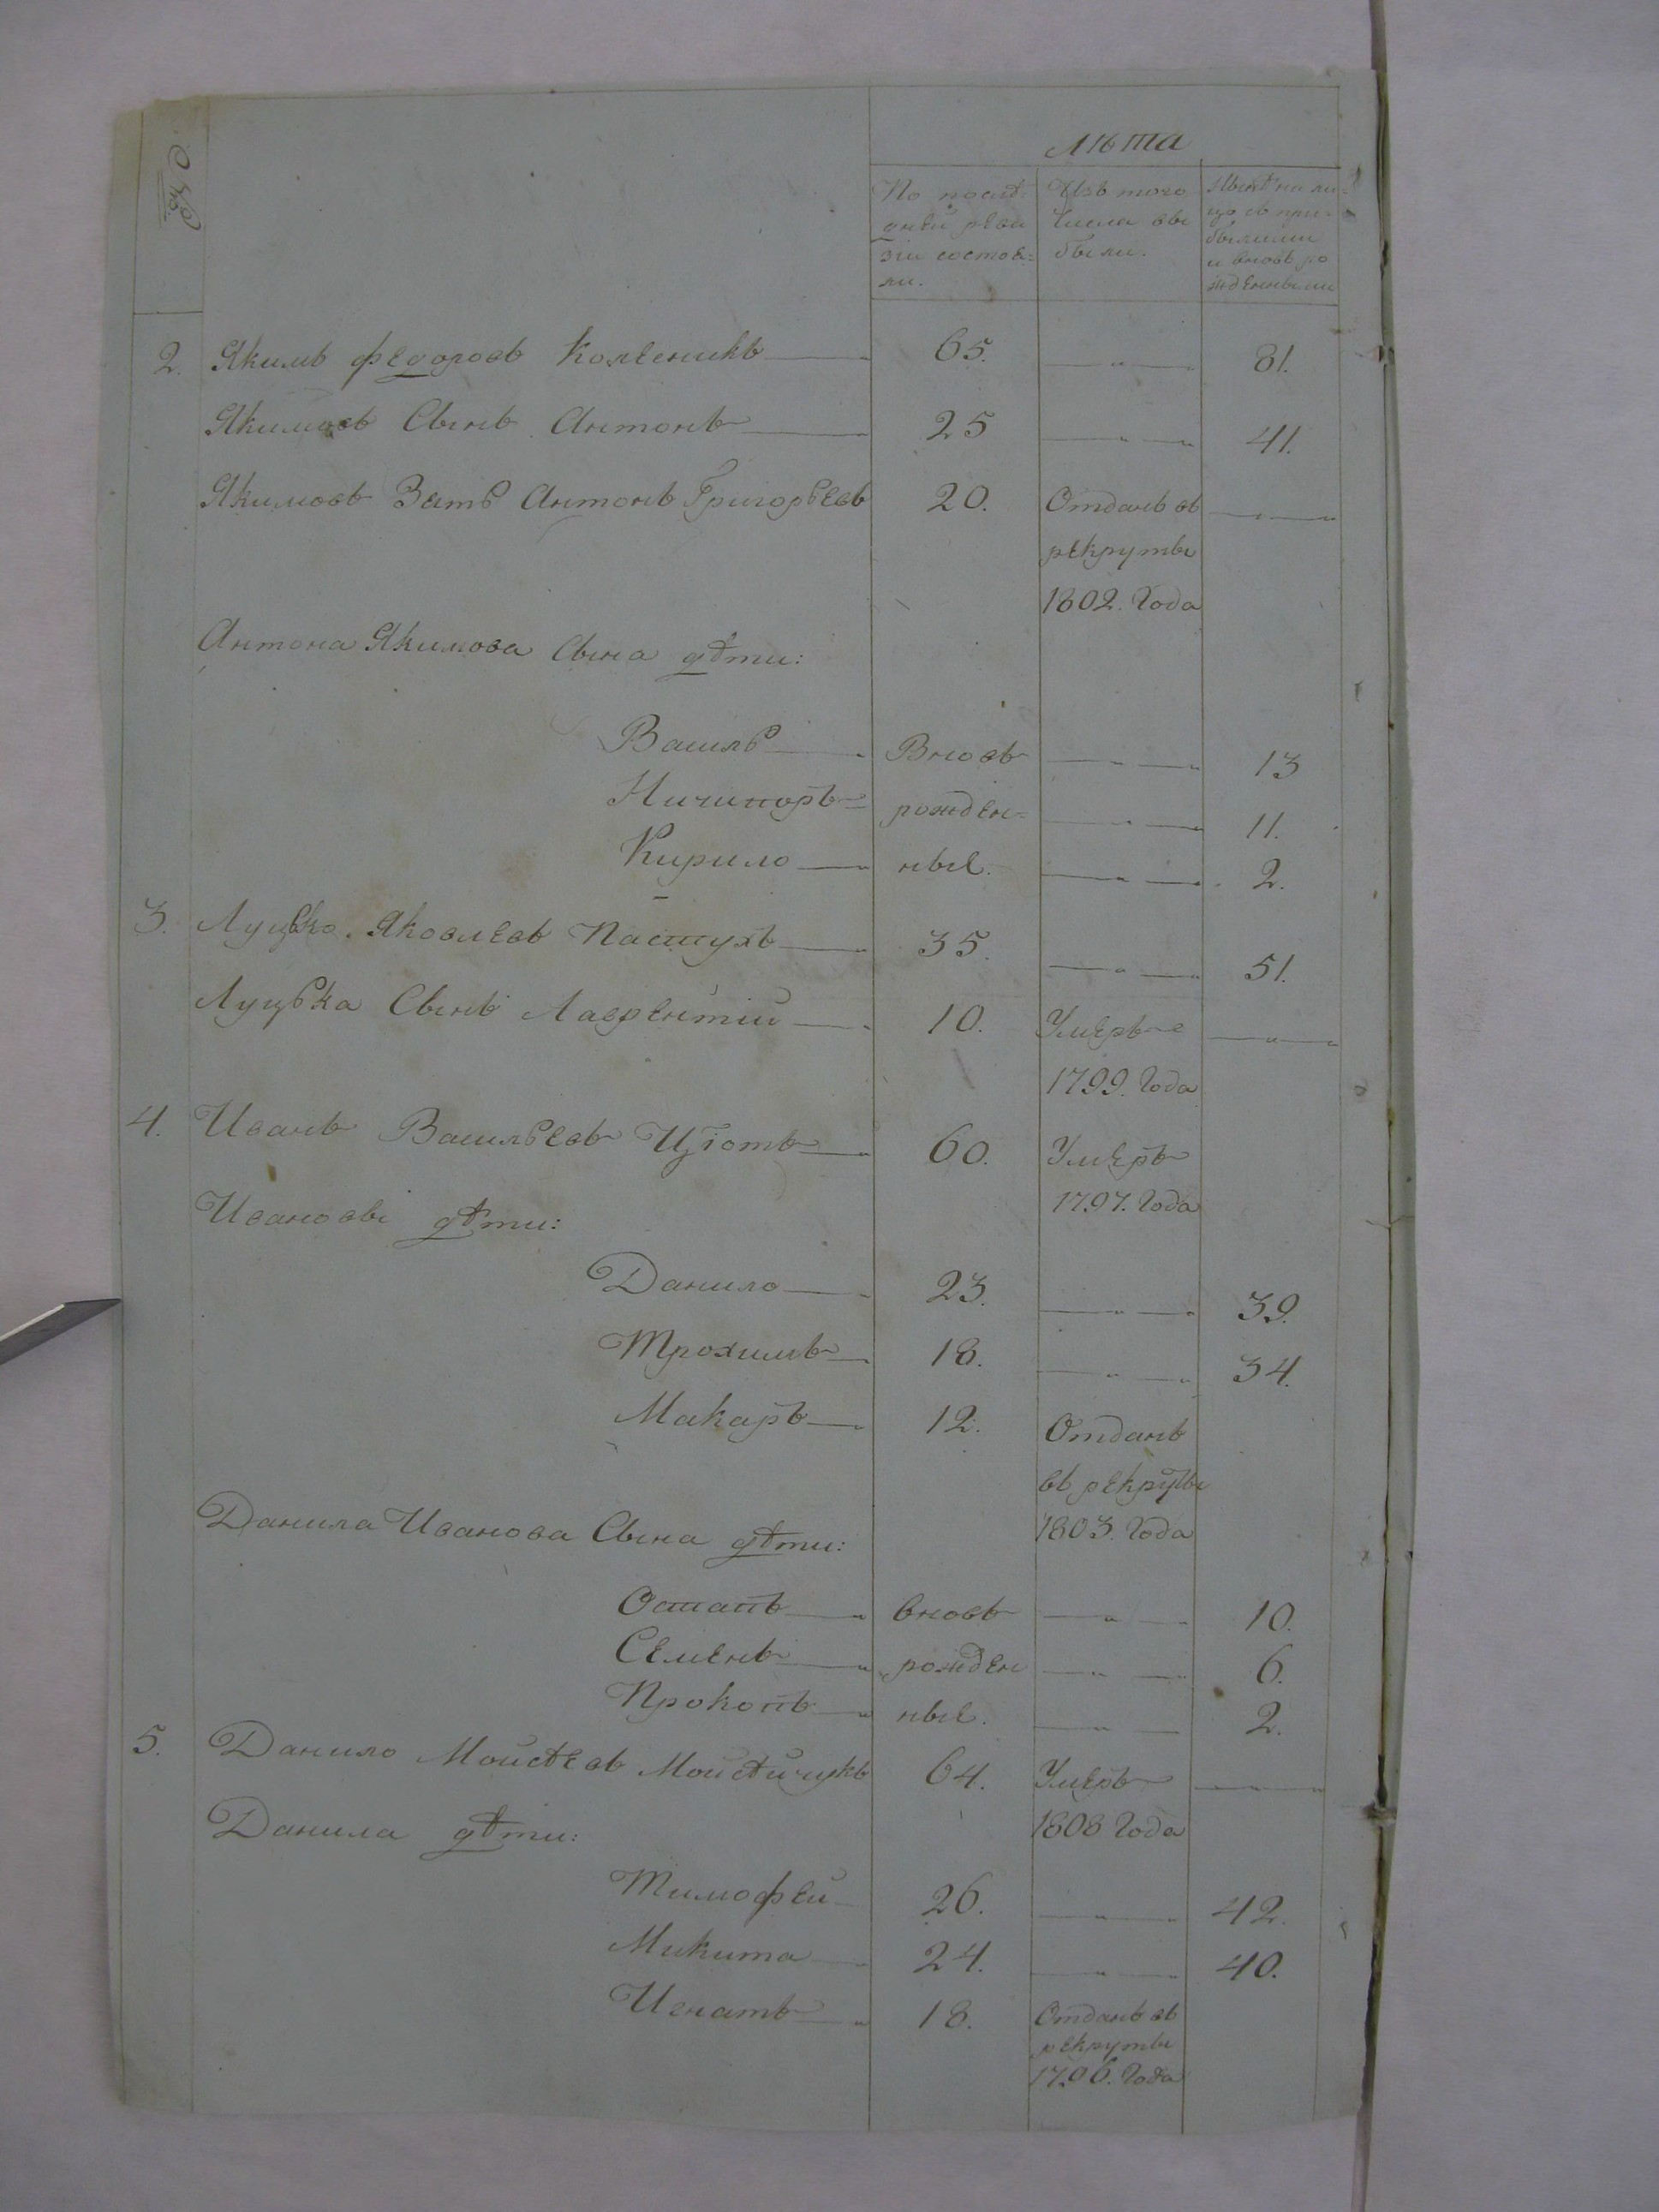 №
лѣта
По послѣ-
дней реви
зіи состоя-
ли.
Изъ того
числа вы
были.
Нынѣ на ли-
цо съ при-
былыми
и вновь ро
жденными
2. Якимъ Федоровъ Колесникъ 65. — " — 81.
Якимовъ Сынъ Антонъ 25 — " — 41.
Якимовъ Зять Антонъ Григорьевъ 20. Отданъ въ — " —
рекруты
1802. Года
Антона Якимова Сына дѣти:
Василь Вновь — " — 13
Ничипоръ рожден- — " — 11.
Кирило ные. — " — 2.
3. Луцько Яковлевъ Пастухъ 35. — " — 51.
Луцька Сынъ Лаврентій 10. Умеръ — " —
1799. Года
4. Иванъ Васильевъ Цютъ 60. Умеръ
Ивановы дѣти: 1797. Года
Данило 23. — " — 39.
Трохимъ 18. — " — 34.
Макаръ 12. Отданъ
въ рекруты
Данила Иванова Сына дѣти: 1803. Года
Остапъ вновь — " — 10.
Семенъ рожден — " — 6.
Прокопъ ные. — " — 2.
5. Данило Мойсѣевъ Мойсѣйчукъ 64. Умеръ — " —
Данила дѣти: 1808 Года
Тимофей 26. — " — 42.
Микита 24. — " — 40.
Игнатъ 18. Отданъ въ
рекруты
1796. Года